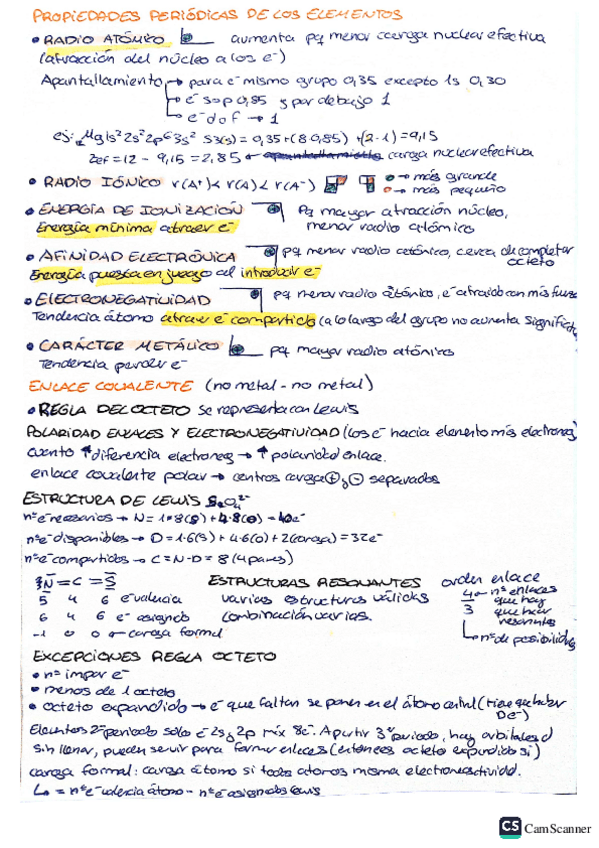 PROPIEDADES PERIÓDICAS DE LOS ELEMENTOS
• RADIO ATÓMICO aumenta pq menor carga nuclear efectiva
(atracción del núcleo a los e⁻)
Apantallamiento → para e⁻ mismo grupo 0,35 excepto 1s 0,30
→ e⁻ s o p 0,85 y por debajo 1
→ e⁻ d o f → 1
ej: ₁₂Mg 1s² 2s² 2p⁶ 3s² S3(s) = 0,35 + (8·0,85) + (2·1) = 9,15
Zef = 12 - 9,15 = 2,85 ← carga nuclear efectiva
• RADIO IÓNICO r(A⁺) < r(A) < r(A⁻) o → más grande
o → más pequeño
• ENERGÍA DE IONIZACIÓN Pq mayor atracción núcleo,
Energía mínima atraer e⁻ menor radio atómico
• AFINIDAD ELECTRÓNICA pq menor radio atómico, cerca de completar octeto
Energía puesta en juego al introducir e⁻
• ELECTRONEGATIVIDAD pq menor radio atómico, e⁻ atraído con más fuerza
Tendencia átomo atraer e⁻ compartido (a lo largo del grupo no aumenta signific
• CARÁCTER METÁLICO pq mayor radio atómico
Tendencia perder e⁻
ENLACE COVALENTE (no metal - no metal)
• REGLA DEL OCTETO se representa con Lewis
POLARIDAD ENLACES Y ELECTRONEGATIVIDAD (los e⁻ hacia elemento más electroneg)
cuanto ↑ diferencia electroneg → ↑ polaridad enlace.
enlace covalente polar → centros carga ⊕ y ⊖ separados
ESTRUCTURA DE LEWIS SO₄²⁻
nº e⁻ necesarios → N = 1·8(S) + 4·8(O) = 40e⁻
nº e⁻ disponibles → D = 1·6(S) + 4·6(O) + 2(carga) = 32e⁻
nº e⁻ compartidos → C = N - D = 8 (4 pares)
N = C = S ESTRUCTURAS RESONANTES orden enlace
5 4 6 e⁻ valencia varias estructuras válidas 4 ← nº enlaces que hay
6 4 6 e⁻ asignado combinación varias. 3 que hay resonantes
-1 0 0 ← carga formal → nº de posibilidades
EXCEPCIONES REGLA OCTETO
• nº impar e⁻
• menos de 1 octeto
• octeto expandido → e⁻ que faltan se ponen en el átomo central (tiene que haber
D e⁻)
Elementos 2º periodo solo e⁻ 2s y 2p máx 8e⁻. A partir 3º periodo, hay orbitales d
sin llenar, pueden servir para formar enlaces (entonces octeto expandido sí)
carga formal: carga átomo si todos átomos misma electronegatividad.
↳ = nº e⁻ valencia átomo - nº e⁻ asignados Lewis
CS CamScanner